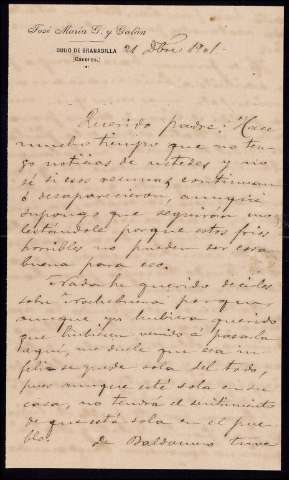 José María G. y Galán
GUIJO DE GRANADILLA
(Cáceres)
21 Dbre 1901
Querido padre: Hace
mucho tiempo que no ten-
go noticias de ustedes y no
sé si esos reumas continuan
ó desaparecieron, aunque
supongo que seguirán mo-
lestándole porque estos frios
horribles no pueden ser cosa
buena para eso.
Nada he querido decirles
sobre Nochebuena porque,
aunque yo hubiera querido
que hubiesen venido á pasarla
aquí, me duele que esa in-
feliz se quede sola del todo,
pues aunque esté sola en su
casa, no tendrá el sentimiento
de que está sola en el pue-
blo.
de Baldomero tuve